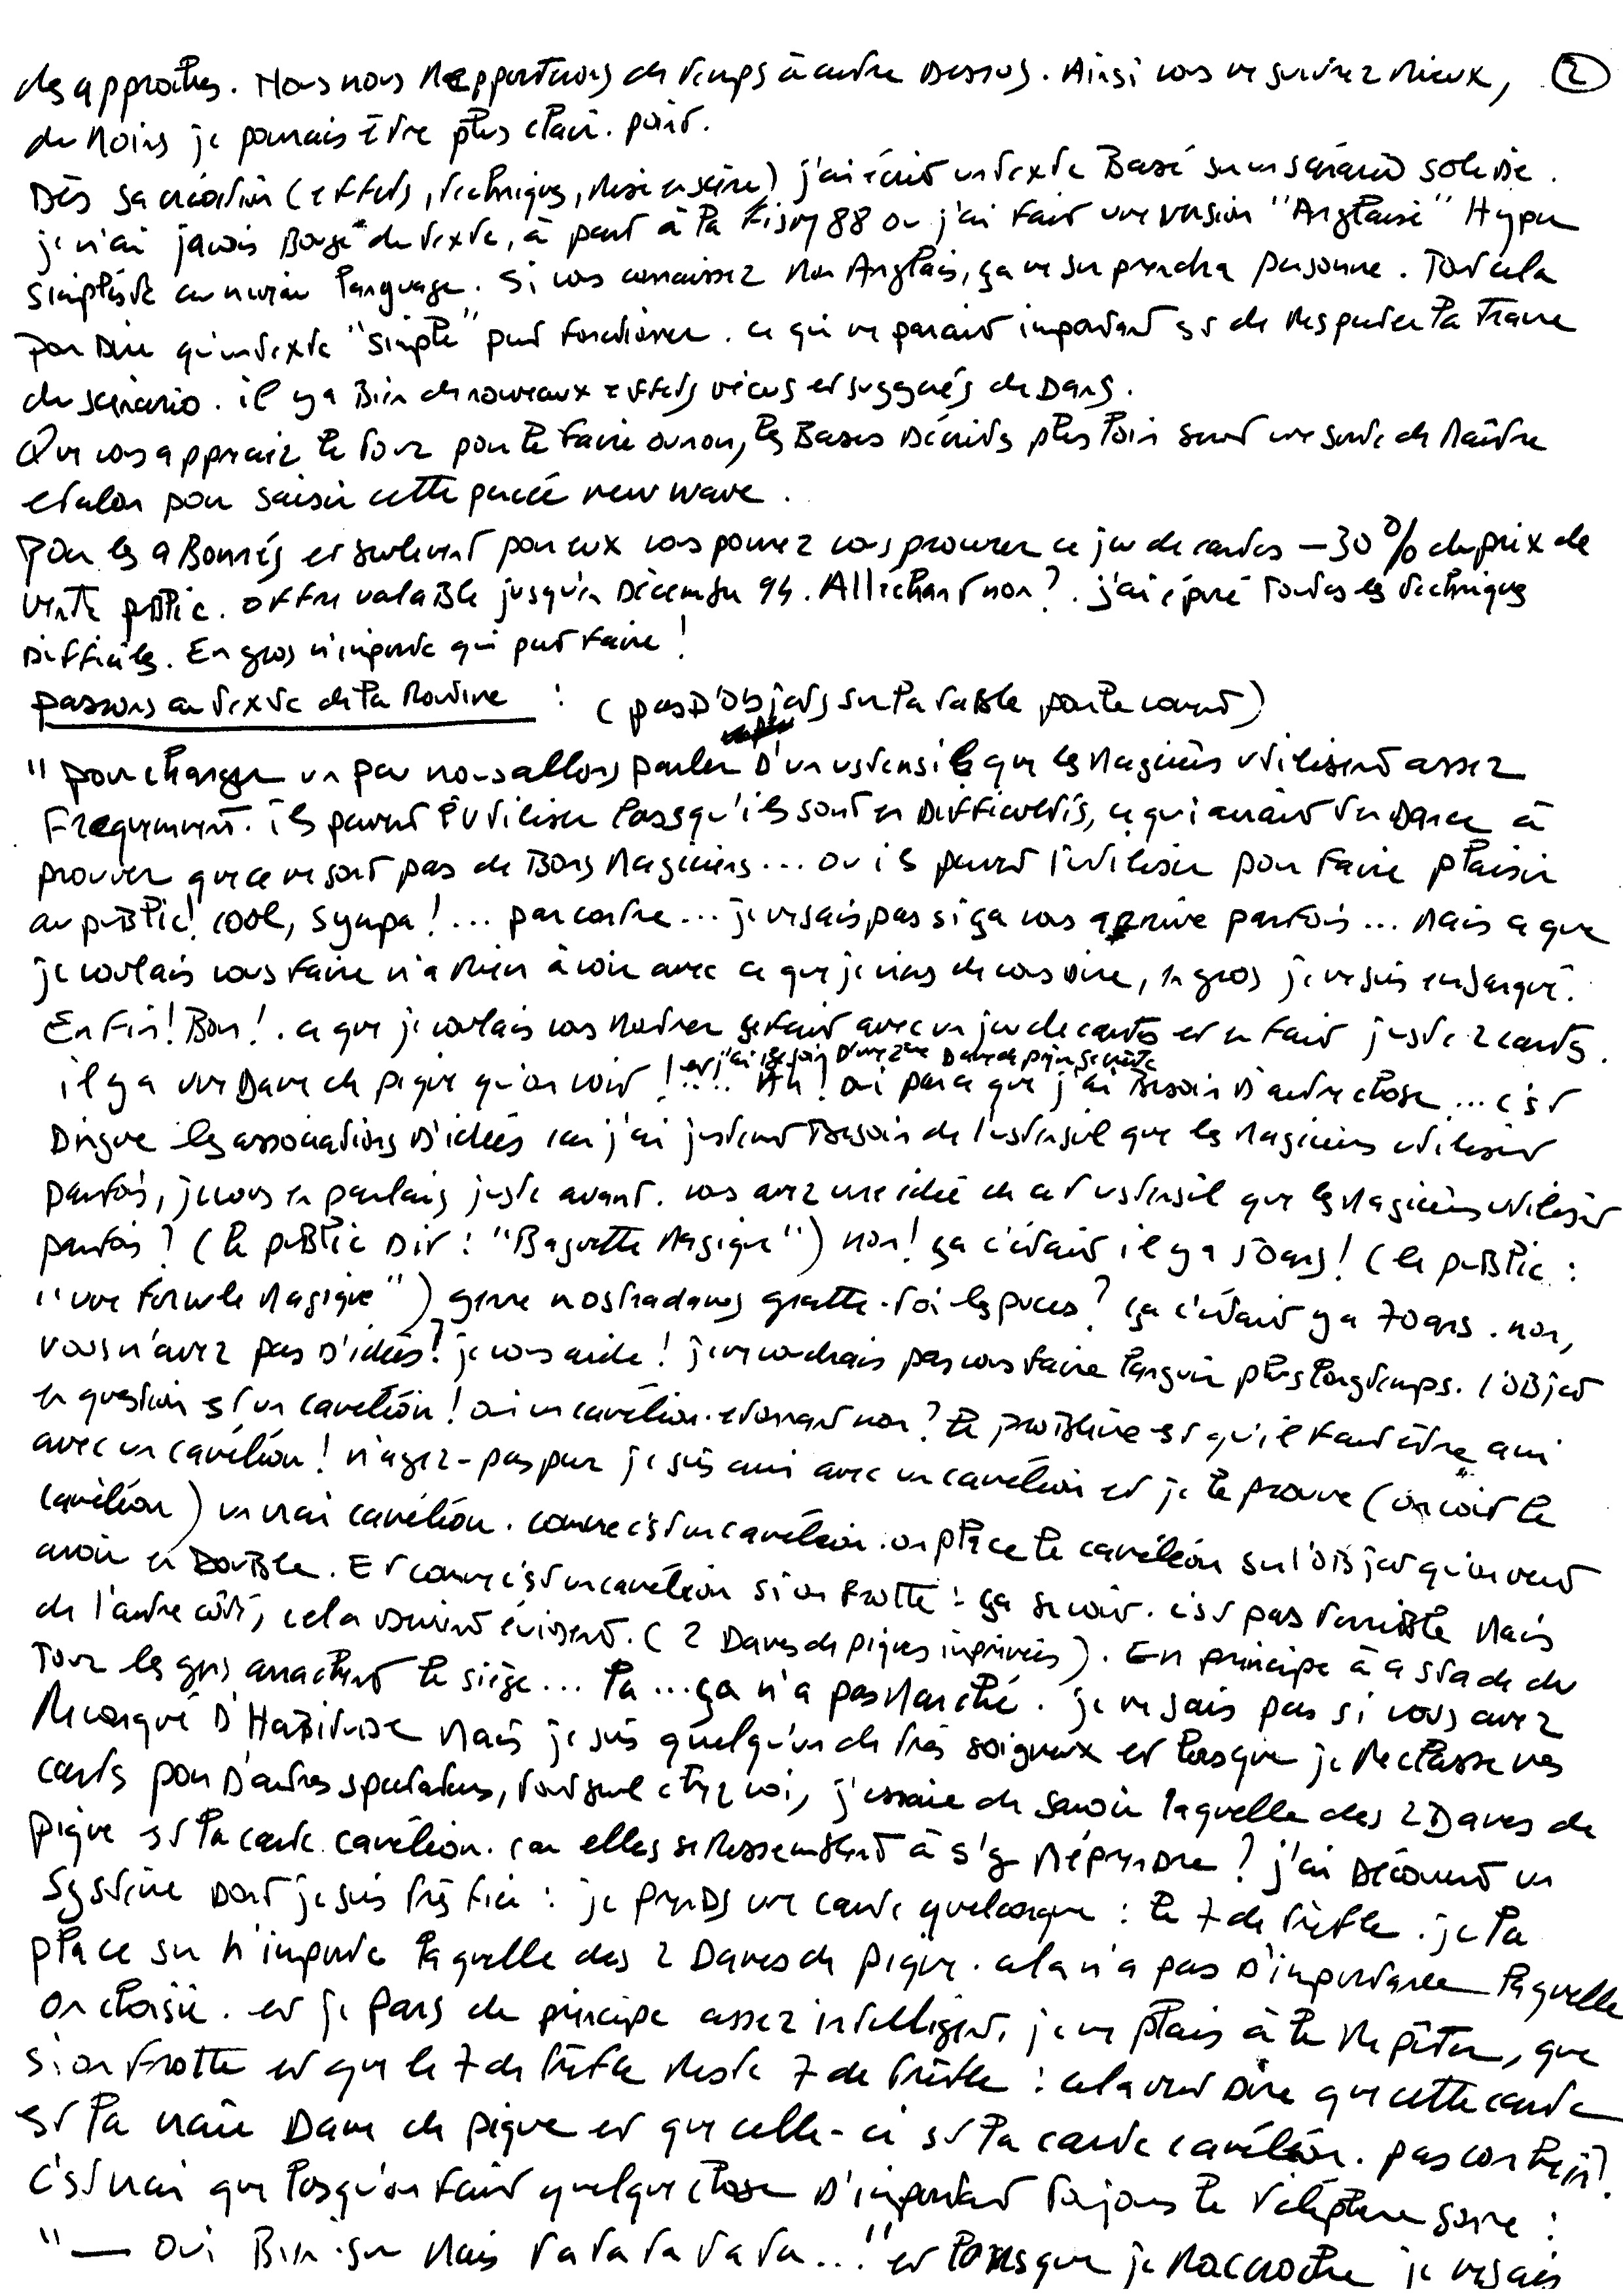 des approches. Nous nous Rapporterons de temps à autre Dessus. Ainsi vous me suivrez Mieux, ②
du Moins je pourrais être plus clair. point.
Dès sa création (effets, techniques, Mise en scène) j'ai écrit un texte Basé sur un scénario solide.
je n'ai jamais Bougé de texte, à part à la Fism 88 où j'ai fait une version "Anglaise" Hyper
simpliste au niveau language. Si vous connaissez Mon Anglais, ça ne surprendra personne. Tout cela
pour Dire qu'un texte "simple" peut fonctionner. ce qui me parait important est de Respecter la Trame
du scénario. il y a Bien de nouveaux effets vécus et suggérés de Dans.
Que vous appreniez le tour pour le faire ou non, les Bases Décrites plus loin sont une sorte de Maître
étalon pour saisir cette percée new wave.
Pour les aBonnés et seulement pour eux vous pouvez vous procurer ce jeu de cartes -30% du prix de
vente puBlic. offre valaBle jusqu'en Décembre 94. Alléchant non?. j'ai épuré Toutes les techniques
Difficiles. En gros n'importe qui peut faire!
passons au texte de la Routine : (pas D'oBjets sur la taBle pour le moment)
"pour changer un peu nous allons parler D'un ustensile que les Magiciens utilisent assez
Fréquemment. ils peuvent l'utiliser lorsqu'ils sont en Difficultés, ce qui aurait tendance à
prouver que ce ne sont pas de Bons Magiciens... ou ils peuvent l'utiliser pour faire plaisir
au puBlic! cool, sympa!... par contre... je ne sais pas si ça vous arrive parfois... Mais ce que
je voulais vous faire n'a Rien à voir avec ce que je viens de vous Dire, en gros je me suis embarqué.
Enfin! Bon!. ce que je voulais vous Montrer se fait avec un jeu de cartes et en fait juste 2 cartes.
et j'ai Besoin D'une 2ème Dame de pique secrète
il y a une Dame de pique qu'on voit!... Ah! oui parce que j'ai Besoin D'autre chose... c'est
Dingue les associations D'idées car j'ai justement Besoin de l'ustensil que les Magiciens utilisent
parfois, je vous en parlais juste avant. vous avez une idée de cet ustensil que les Magiciens utilisent
parfois? (le puBlic Dit : "Baguette Magique") non! ça c'était il y a 50 ans! (le puBlic :
"une formule Magique") genre nostradamus gratte-toi les puces? ça c'était y a 70 ans. non,
vous n'avez pas D'idées! je vous aide! je ne voudrais pas vous faire languir plus longtemps. l'oBjet
en question est un caméléon! oui un caméléon. étonnant non? le proBlème est qu'il faut être ami
avec un caméléon! n'ayez-pas peur je suis ami avec un caméléon et je le prouve (on voit le
caméléon) un vrai caméléon. comme c'est un caméléon. on place le caméléon sur l'oBjet qu'on veut
avoir en DouBle. Et comme c'est un caméléon si on frotte : ça se voit. c'est pas terriBle Mais
de l'autre côté, cela devient évident. (2 Dames de piques imprimées). En principe à ce stade du
Tour les gens arrachent le siège... là... ça n'a pas Marché. je ne sais pas si vous avez
Remarqué D'HaBitude Mais je suis quelqu'un de très soigneux et lorsque je Reclasse mes
cartes pour D'autres spectateurs, tout seul chez moi, j'essaie de savoir laquelle des 2 Dames de
pique est la carte caméléon. car elles se RessemBlent à s'y Méprendre? j'ai Découvert un
système Dont je suis très fier : je prends une carte quelconque : le 7 de trèfle. je la
place sur n'importe laquelle des 2 Dames de pique. cela n'a pas D'importance laquelle
on choisie. et je pars du principe assez intelligent, je me plais à le Répéter, que
si on frotte et que le 7 de trèfle Reste 7 de trèfle : cela veut Dire que cette carte
est la vraie Dame de pique et que celle-ci est la carte caméléon. pas con hein?.
c'est vrai que lorsqu'on fait quelque chose D'important toujours le téléphone sonne :
"— Oui Bien-sur Mais ta ta ta ta ta..." et lorsque je Raccroche je ne sais